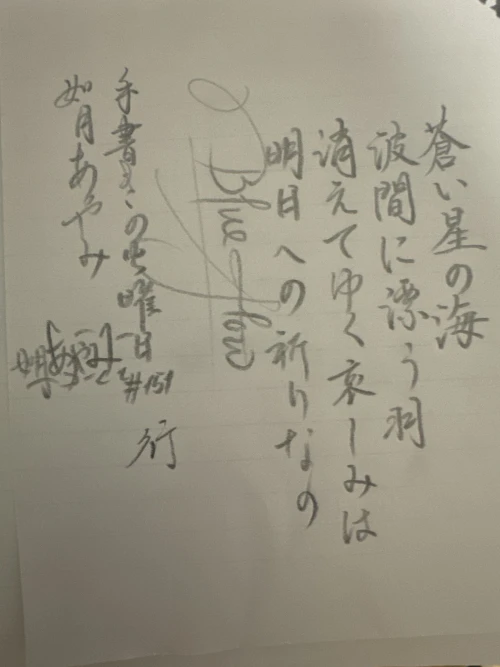 蒼い星の海
波間に漂う羽
消えてゆく哀しみは
明日への祈りなの
Blue flow
手書きの土曜日
#151
行
如月あやみ